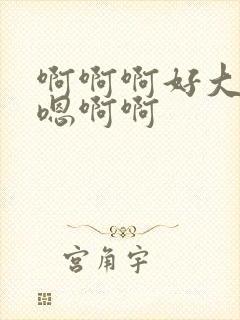 啊啊啊好大
嗯啊啊
宫角宇